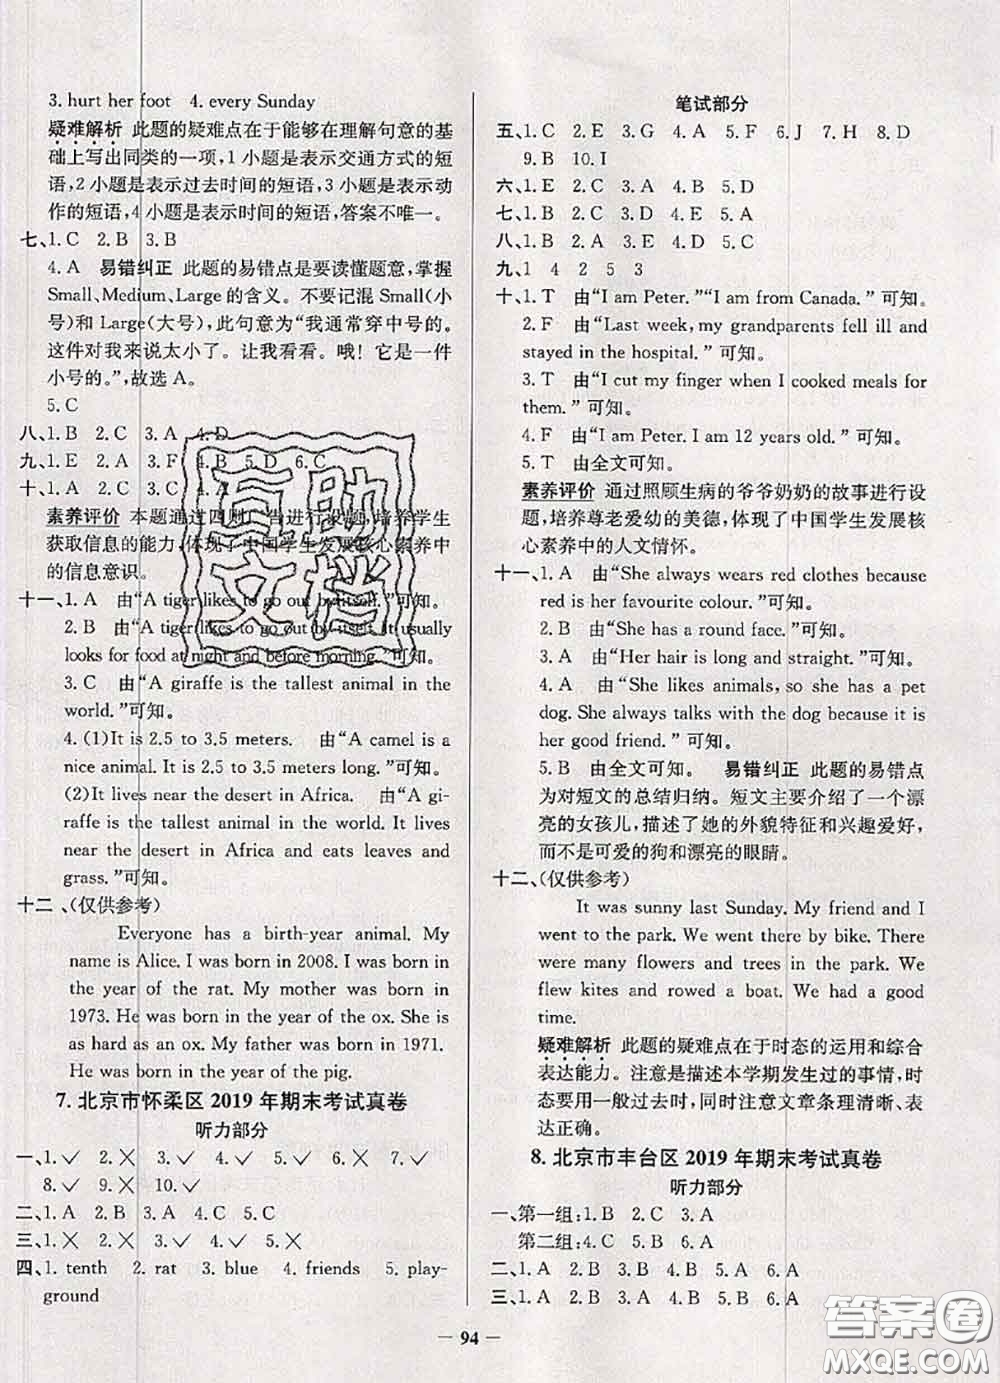 3. hurt her foot　4. every Sunday
疑难解析　此题的疑难点在于能够在理解句意的基
础上写出同类的一项,1 小题是表示交通方式的短
语,2 小题是表示过去时间的短语,3 小题是表示动
作的短语,4 小题是表示时间的短语,答案不唯一。
七、1.C　2.B　3.B
4. A　易错纠正　此题的易错点是要读懂题意,掌握
Small、Medium、Large 的含义。不要记混 Small(小
号)和 Large(大号),此句意为“我通常穿中号的。
这件对我来说太小了。让我看看。哦！它是一件
小号的。”,故选 A。
5. C
八、1.B　2.C　3.A　4.D
九、1.E　2.A　3.F　4.B　5.D　6.C
十、1.C　2.B　3.C　4.A
素养评价　本题通过四则广告进行设题,培养学生
获取信息的能力,体现了中国学生发展核心素养中
的信息意识。
十一、1.A　由“A tiger likes to go out by itself.”可知。
2. B　由“A tiger likes to go out by itself. It usually
looks for food at night and before morning.”可知。
3. C　由“A giraffe is the tallest animal in the
world.”可知。
4. (1)It is 2.5 to 3.5 meters.　由“A camel is a
nice animal. It is 2.5 to 3.5 meters long.”可知。
(2)It lives near the desert in Africa.　由“A gi-
raffe is the tallest animal in the world. It lives
near the desert in Africa and eats leaves and
grass.”可知。
十二、(仅供参考)
Everyone has a birth-year animal. My
name is Alice. I was born in 2008. I was born in
the year of the rat. My mother was born in
1973. He was born in the year of the ox. She is
as hard as an ox. My father was born in 1971.
He was born in the year of the pig.
7. 北京市怀柔区 2019 年期末考试真卷
听力部分
一、1.✓　2.✗　3.✓　4.✓　5.✗　6.✗　7.✓
8.✓　9.✗　10.✓
二、1.A　2.B　3.A　4.C　5.C
三、1.✗　2.✗　3.✓　4.✓　5.✗
四、1. tenth　2. rat　3. blue　4. friends　5. play-
ground
笔试部分
五、1.C　2.E　3.G　4.A　5.F　6.J　7.H　8.D
9.B　10.I
六、1.E　2.C　3.A　4.B　5.D
七、1.B　2.C　3.D　4.E　5.A
八、1.B　2.A　3.C　4.B　5.C
九、1　4　2　5　3
十、1.T　由“I am Peter.”“I am from Canada.”可知。
2. F　由“Last week, my grandparents fell ill and
stayed in the hospital.”可知。
3. T　由“I cut my finger when I cooked meals for
them.”可知。
4. F　由“I am Peter. I am 12 years old.”可知。
5. T　由全文可知。
素养评价　通过照顾生病的爷爷奶奶的故事进行设
题,培养尊老爱幼的美德,体现了中国学生发展核
心素养中的人文情怀。
十一、1.A　由“She always wears red clothes because
red is her favourite colour.”可知。
2. B　由“She has a round face.”可知。
3. A　由“Her hair is long and straight.”可知。
4. A　由“She likes animals, so she has a pet
dog. She always talks with the dog because it is
her good friend.”可知。
5. B　由全文可知。　易错纠正　此题的易错点
为对短文的总结归纳。短文主要介绍了一个漂
亮的女孩儿,描述了她的外貌特征和兴趣爱好,
而不是可爱的狗和漂亮的眼睛。
十二、(仅供参考)
It was sunny last Sunday. My friend and I
went to the park. We went there by bike. There
were many flowers and trees in the park. We
flew kites and rowed a boat. We had a good
time.
疑难解析　此题的疑难点在于时态的运用和综合
表达能力。注意是描述本学期发生过的事情,时
态要用一般过去时,同时注意文章条理清晰、表
达正确。
8. 北京市丰台区 2019 年期末考试真卷
听力部分
一、第一组:1.B　2.C　3.A
第二组:4.C　5.B　6.A
二、1.A　2.A　3.B　4.B　5.B　6.A
三、1.A　2.A　3.B　4.A　5.B　6.A
— 94 —
互助
文档
答案圈
MXQE.COM